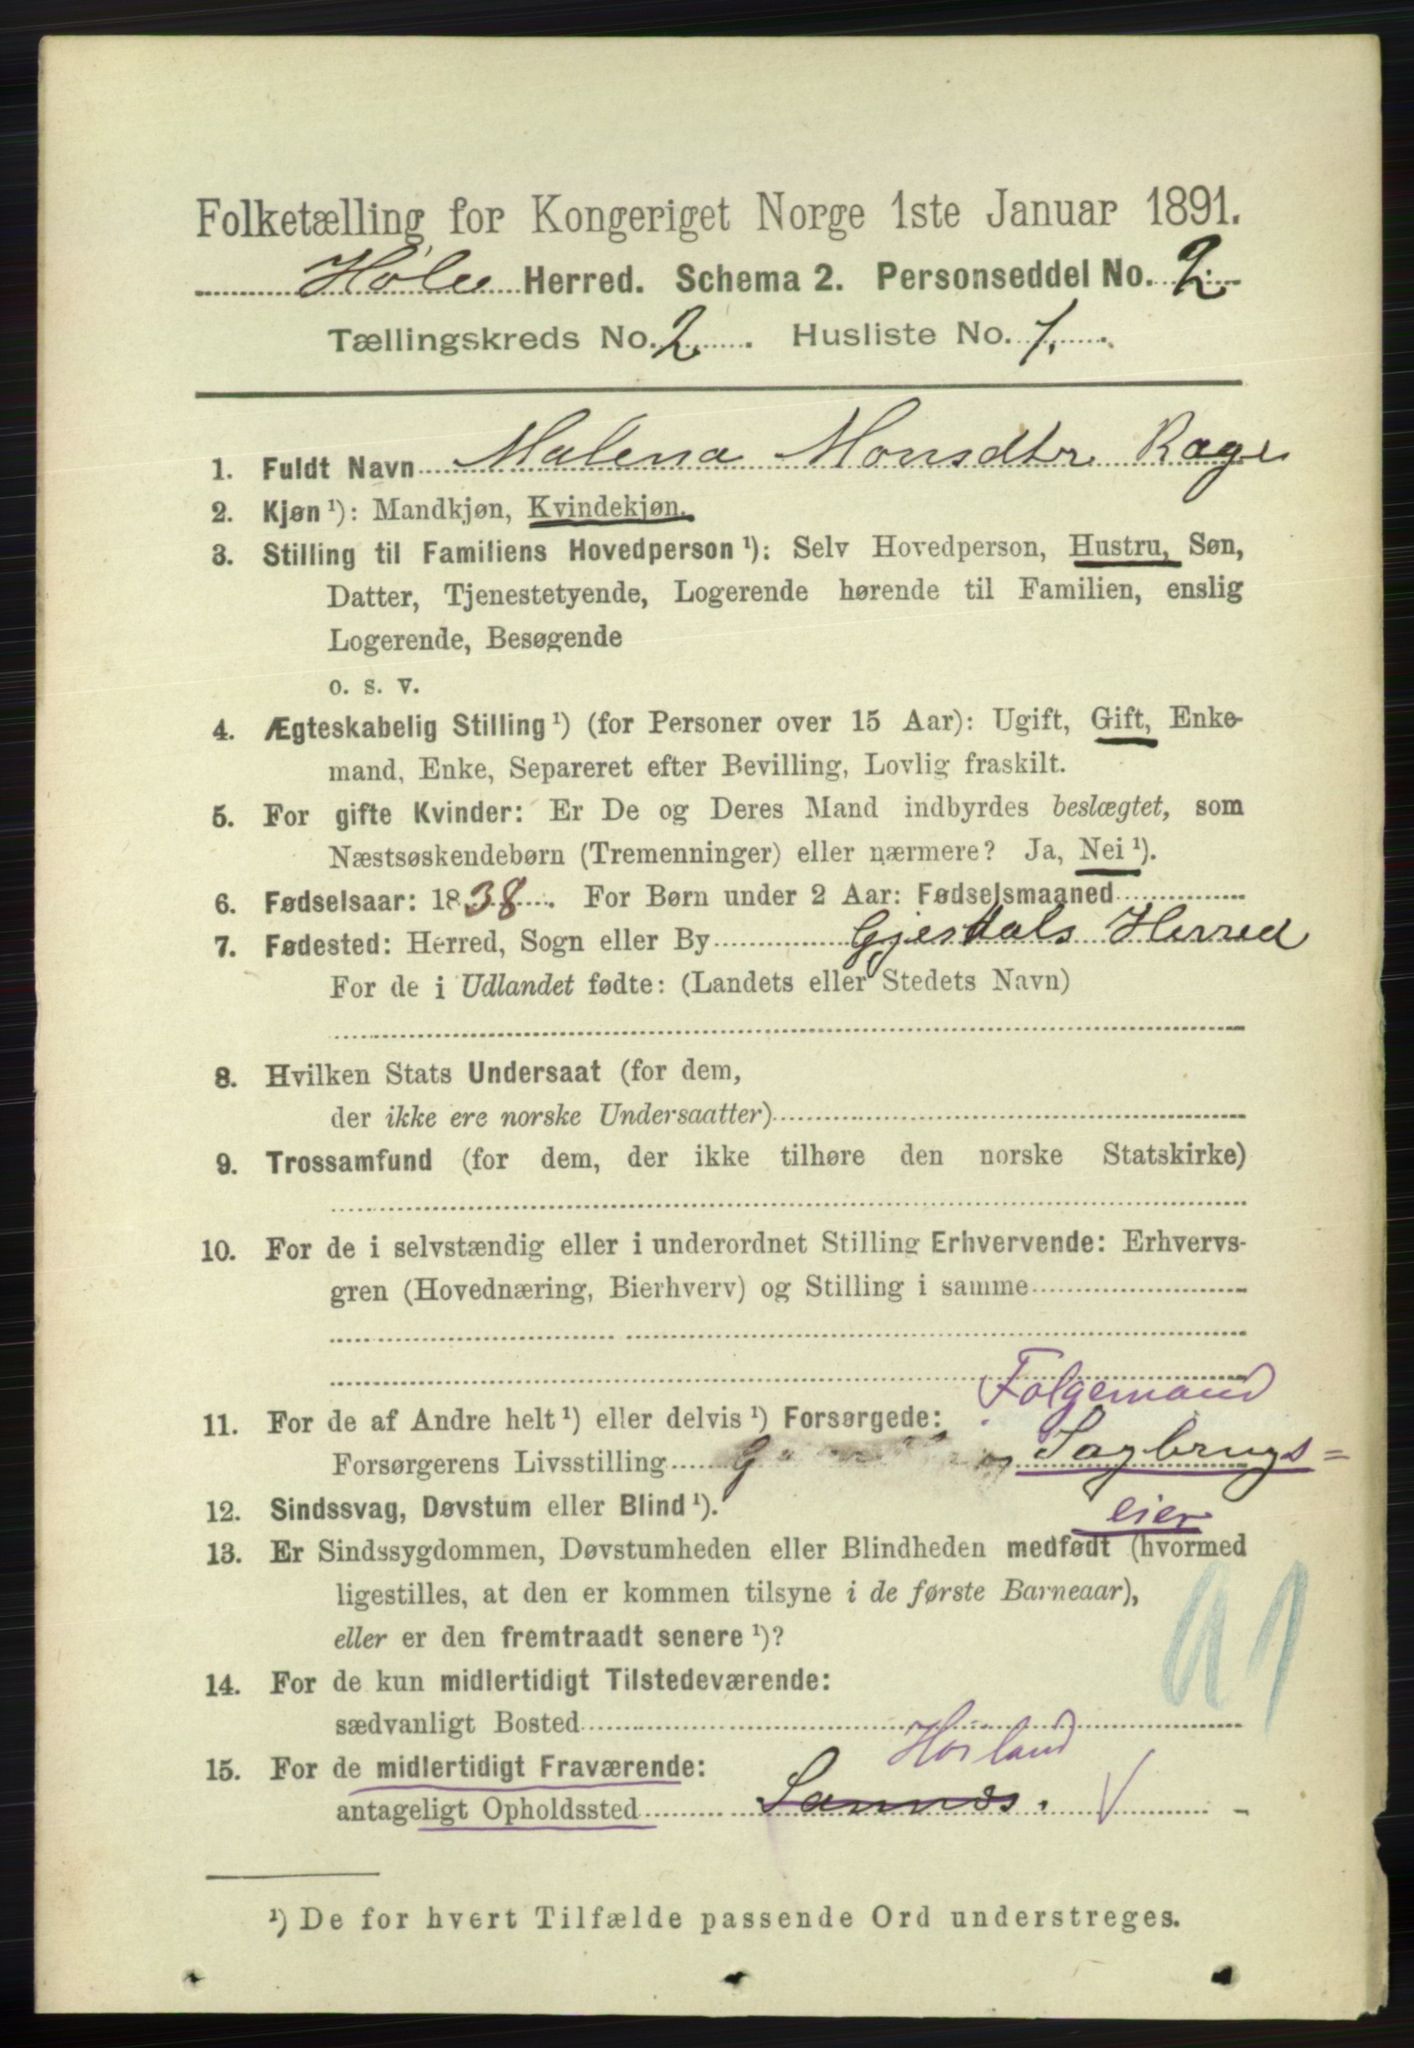 Folketælling for Kongeriget Norge 1ste Januar 1891.
Høle Herred. Schema 2. Personseddel No. 2.
Tællingskreds No. 2. Husliste No. 1.
1. Fuldt Navn Malena Monsdtr Rage
2. Kjøn ¹): Mandkjøn, Kvindekjøn.
3. Stilling til Familiens Hovedperson ¹): Selv Hovedperson, Hustru, Søn,
Datter, Tjenestetyende, Logerende hørende til Familien, enslig
Logerende, Besøgende
o. s. v.
4. Ægteskabelig Stilling ¹) (for Personer over 15 Aar): Ugift, Gift, Enke-
mand, Enke, Separeret efter Bevilling, Lovlig fraskilt.
5. For gifte Kvinder: Er De og Deres Mand indbyrdes beslægtet, som
Næstsøskendebørn (Tremenninger) eller nærmere? Ja, Nei ¹).
6. Fødselsaar: 1838. For Børn under 2 Aar: Fødselsmaaned
7. Fødested: Herred, Sogn eller By Gjesdals Herred
For de i Udlandet fødte: (Landets eller Stedets Navn)
8. Hvilken Stats Undersaat (for dem,
der ikke ere norske Undersaatter)
9. Trossamfund (for dem, der ikke tilhøre den norske Statskirke)
10. For de i selvstændig eller i underordnet Stilling Erhvervende: Erhvervs-
gren (Hovednæring, Bierhverv) og Stilling i samme
Folgemand
11. For de af Andre helt ¹) eller delvis ¹) Forsørgede:
Forsørgerens Livsstilling Sagbrugs=
eier
12. Sindssvag, Døvstum eller Blind ¹).
13. Er Sindssygdommen, Døvstumheden eller Blindheden medfødt (hvormed
ligestilles, at den er kommen tilsyne i de første Barneaar),
eller er den fremtraadt senere ¹)?
14. For de kun midlertidigt Tilstedeværende:
sædvanligt Bosted
Høiland
15. For de midlertidigt Fraværende:
antageligt Opholdssted Sannæs. V
¹) De for hvert Tilfælde passende Ord understreges.